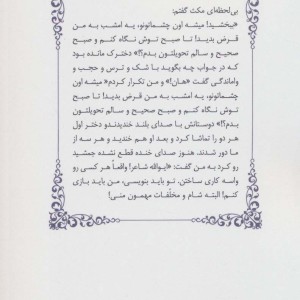 بی‌لحظه‌ای مکث گفتم:
«ببخشید! میشه اون چشماتونو، یه امشب به من
قرض بدید! تا صبح توش نگاه کنم و صبح
صحیح و سالم تحویلتون بدم؟!» دخترک مانده بود
که در جواب چه بگوید با شک و ترس و حجب و
واماندگی گفت «هان!» و من تکرار کردم «میشه اون
چشماتونو، یه امشب به من قرض بدید! تا صبح
توش نگاه کنم و صبح صحیح و سالم تحویلتون
بدم؟!» دوستاش با صدای بلند خندیدند و دختر اول
هر دو را تماشا کرد و بعد او هم خندید و هر سه از
ما دور شدند. هنوز صدای خنده قطع نشده جمشید
رو کرد به من گفت: «ایوالله شاعر! واقعاً هر کسی رو
واسه کاری ساختن. تو باید بنویسی، من باید بازی
کنم! البته شام و مخلّفات مهمون منی!